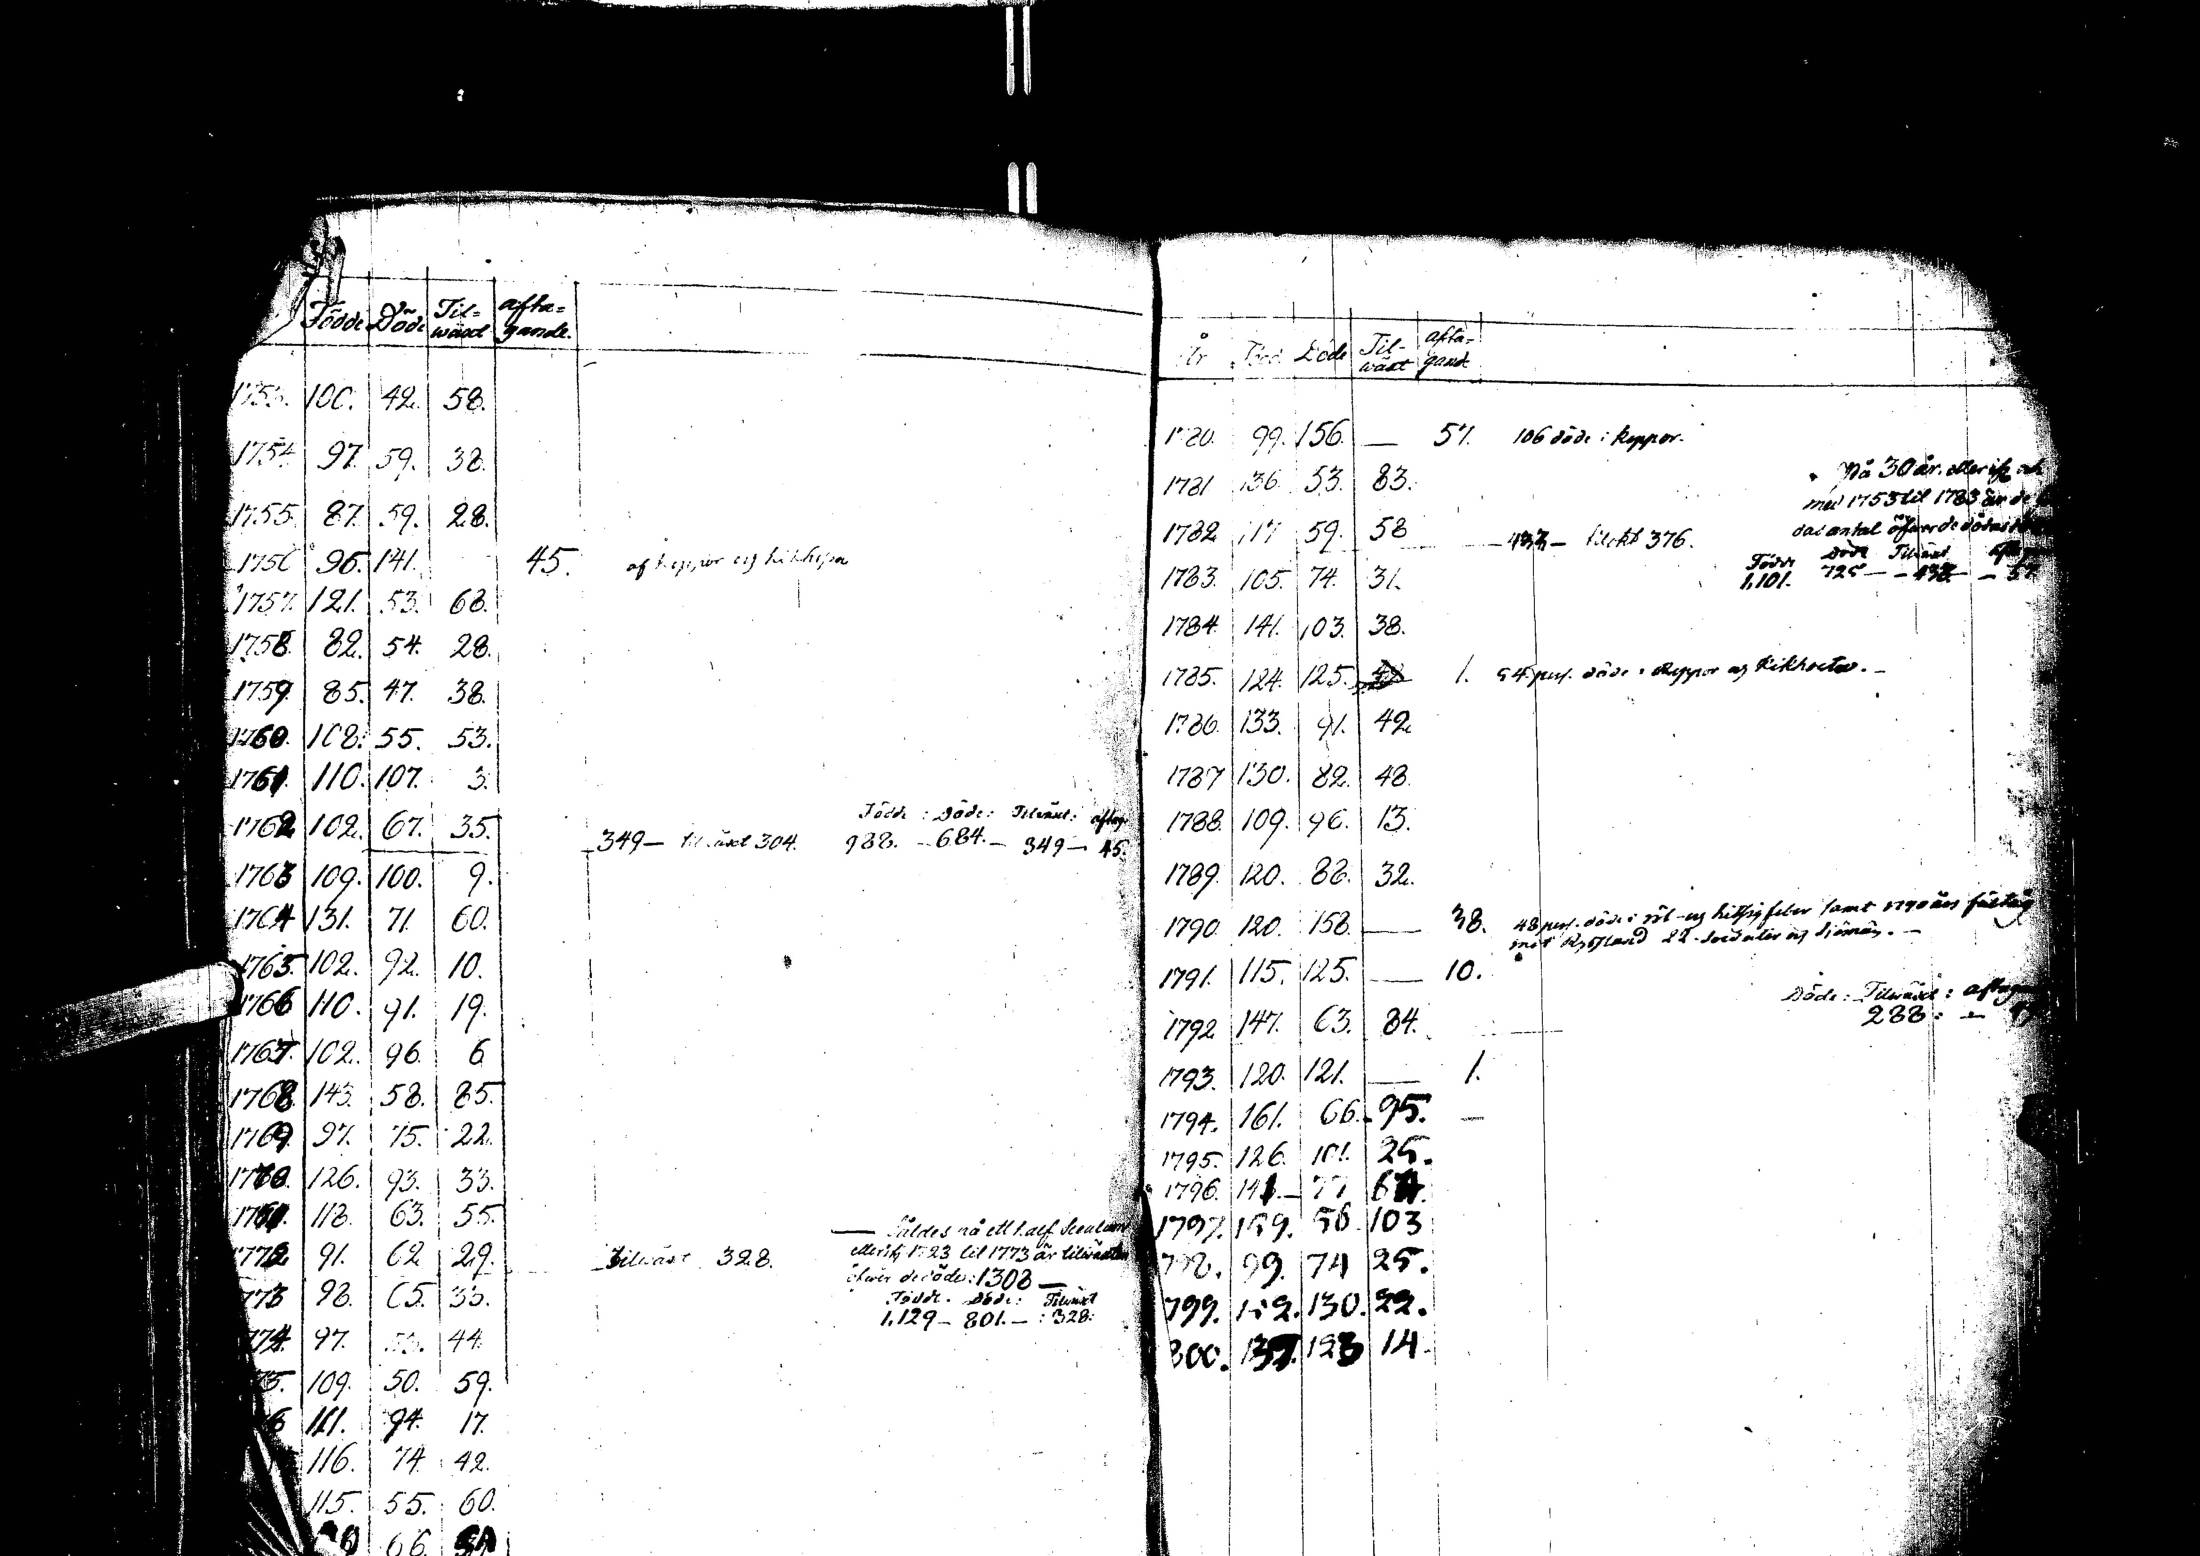 Födde Döde Til= afta=
wäxt gande.
1753. 100. 42. 58.
1754. 97. 59. 38.
1755. 87. 59. 28.
1756 96. 141. 45. af koppor og kikhosta
1757. 121. 53. 68.
1758. 82. 54. 28.
1759. 85. 47. 38.
1760. 108. 55. 53.
1761. 110. 107. 3.
1762. 102. 67. 35.
Födde : Döde : Tilwäxt : aftag.
349 — tilwäxt 304. 988. — 684. — 349 — 45.
1763 109. 100. 9.
1764 131. 71. 60.
1765. 102. 92. 10.
1766 110. 91. 19.
1767. 102. 96. 6
1768. 143. 58. 85.
1769 97. 75. 22.
1770. 126. 93. 33.
1771. 118. 63. 55.
— Således på ett half Seculum
1772. 91. 62 29. Tilwäxt 328.
1723 til 1773 är tilwäxten
öfwer de döda: 1308 —
1773 98. 65. 33.
Födde. Döde: Tilwäxt
1,129 — 801. — : 328:
1774. 97. 53. 44.
75. 109. 50. 59.
6 111. 94. 17.
116. 74. 42.
115. 55. 60.
66.
År Död. Döde Til- afta-
wäxt gand.
1780. 99. 156. — 57. 106 döde i koppor.
1781 136. 53. 83.
På 30 år.
med 1753 til 1783 är de
1782 117 59. 58
das antal öfwer de dödas
— 433 — 376.
Födde Döde Tilwäxt
1,101. 725 — — 433 — — 57
1783. 105. 74. 31.
1784. 141. 103. 38.
1785. 124. 125. 1. 54. pers. döde i koppor og kikhosta. —
1786. 133. 91. 42.
1787 130. 82. 48.
1788. 109. 96. 13.
1789. 120. 88. 32.
1790. 120. 158. — 38. 48 pers. döde i röt- og hitsig feber samt 1790 års fältåg
mot Ryssland 22. soldater og
1791. 115. 125. — 10.
Döde : Tilwäxt : aftagan
288 : —
1792 147. 63. 84.
1793. 120. 121. — 1.
1794. 161. 66. 95. —
1795. 126. 101. 25.
1796. 141. — 77 64.
1797. 159. 56. 103
798. 99. 74 25.
799. 152. 130. 22.
800. 137. 123 14.